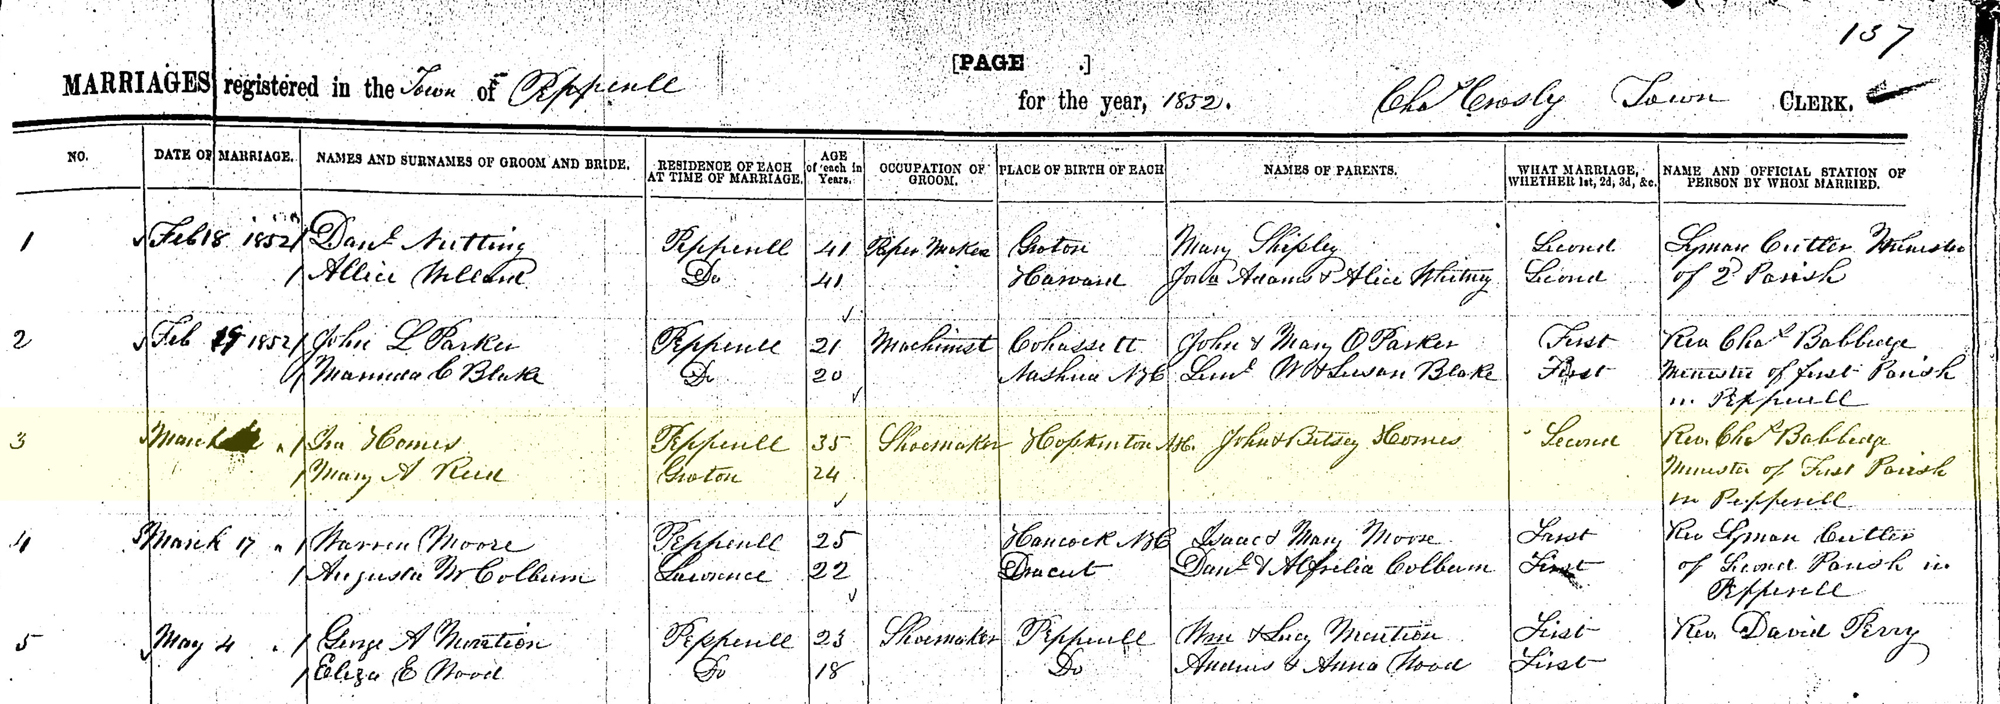 137
[PAGE .]
MARRIAGES registered in the Town of Pepperell for the year, 1852. Chas Crosby Town CLERK.
NO. DATE OF MARRIAGE. NAMES AND SURNAMES OF GROOM AND BRIDE. RESIDENCE OF EACH AT TIME OF MARRIAGE. AGE of each in Years. OCCUPATION OF GROOM. PLACE OF BIRTH OF EACH NAMES OF PARENTS. WHAT MARRIAGE, WHETHER 1st, 2d, 3d, &c. NAME AND OFFICIAL STATION OF PERSON BY WHOM MARRIED.
1 Feb 18 1852 Danl Nutting Pepperell 41 Paper Maker Groton Mary Shipley Second Lyman Cutler Minister
Allice Willard Do 41 Harvard Jona Adams & Alice Whitney Second of 2d Parish
2 Feb 19 1852 John L Parker Pepperell 21 Machinist Cohassett John & Mary O Parker First Rev Chas Babbidge
C Blake Do 20 Nashua NH Leml W & Susan Blake First Minister of first Parish
in Pepperell
3 March " Ira Homes Pepperell 35 Shoemaker Hopkinton NH. John & Betsey Homes Second Rev. Chas Babbidge
Mary A Reed Groton 24 Minister of First Parish
in Pepperell
4 March 17 " Warren Moore Pepperell 25 Hancock NH Isaac & Mary Moore First Rev Lyman Cutler
Augusta M Colburn Lawrence 22 Dracut Danl & Colburn First of Second Parish in
Pepperell
5 May 4 " George A Pepperell 23 Shoemaker Pepperell Wm & Lucy First Rev. David Perry
Eliza E Wood Do 18 Do Andrew & Anna Wood First